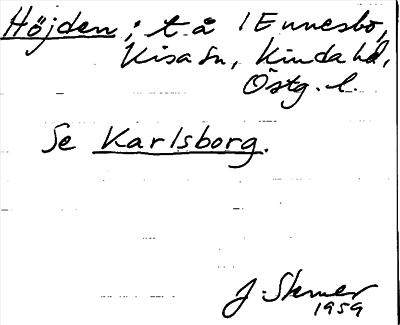 Höjden; t. å 1 Ennesbo,
Kisa sn, Kinda hd,
Östg. l.
Se Karlsborg.
J. Stemer
1959